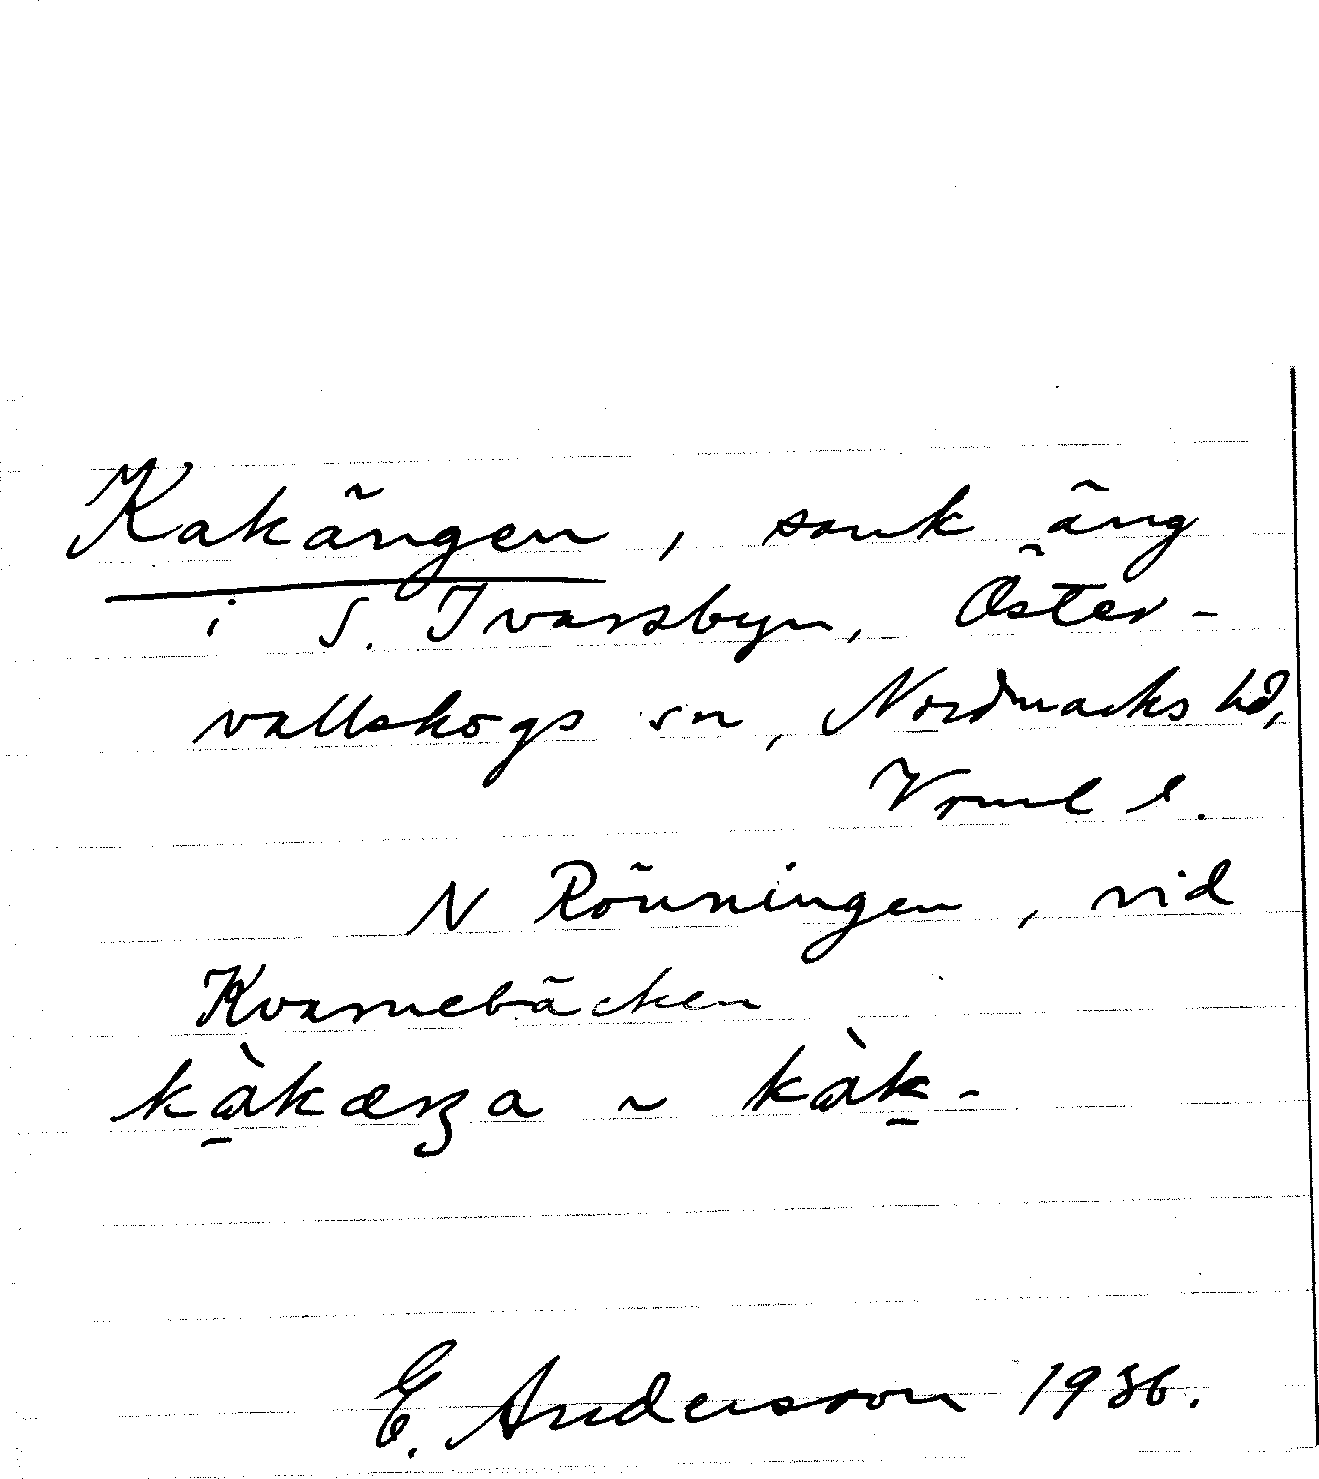 Kakängen, sank äng
i S. Ivarsbyn, Öster-
vallskogs sn, Nordmarks hd,
Vrml l.
N Rönningen, vid
Kvarnebäcken
kàkæŋa ~ kàk-
E. Andersson 1936.